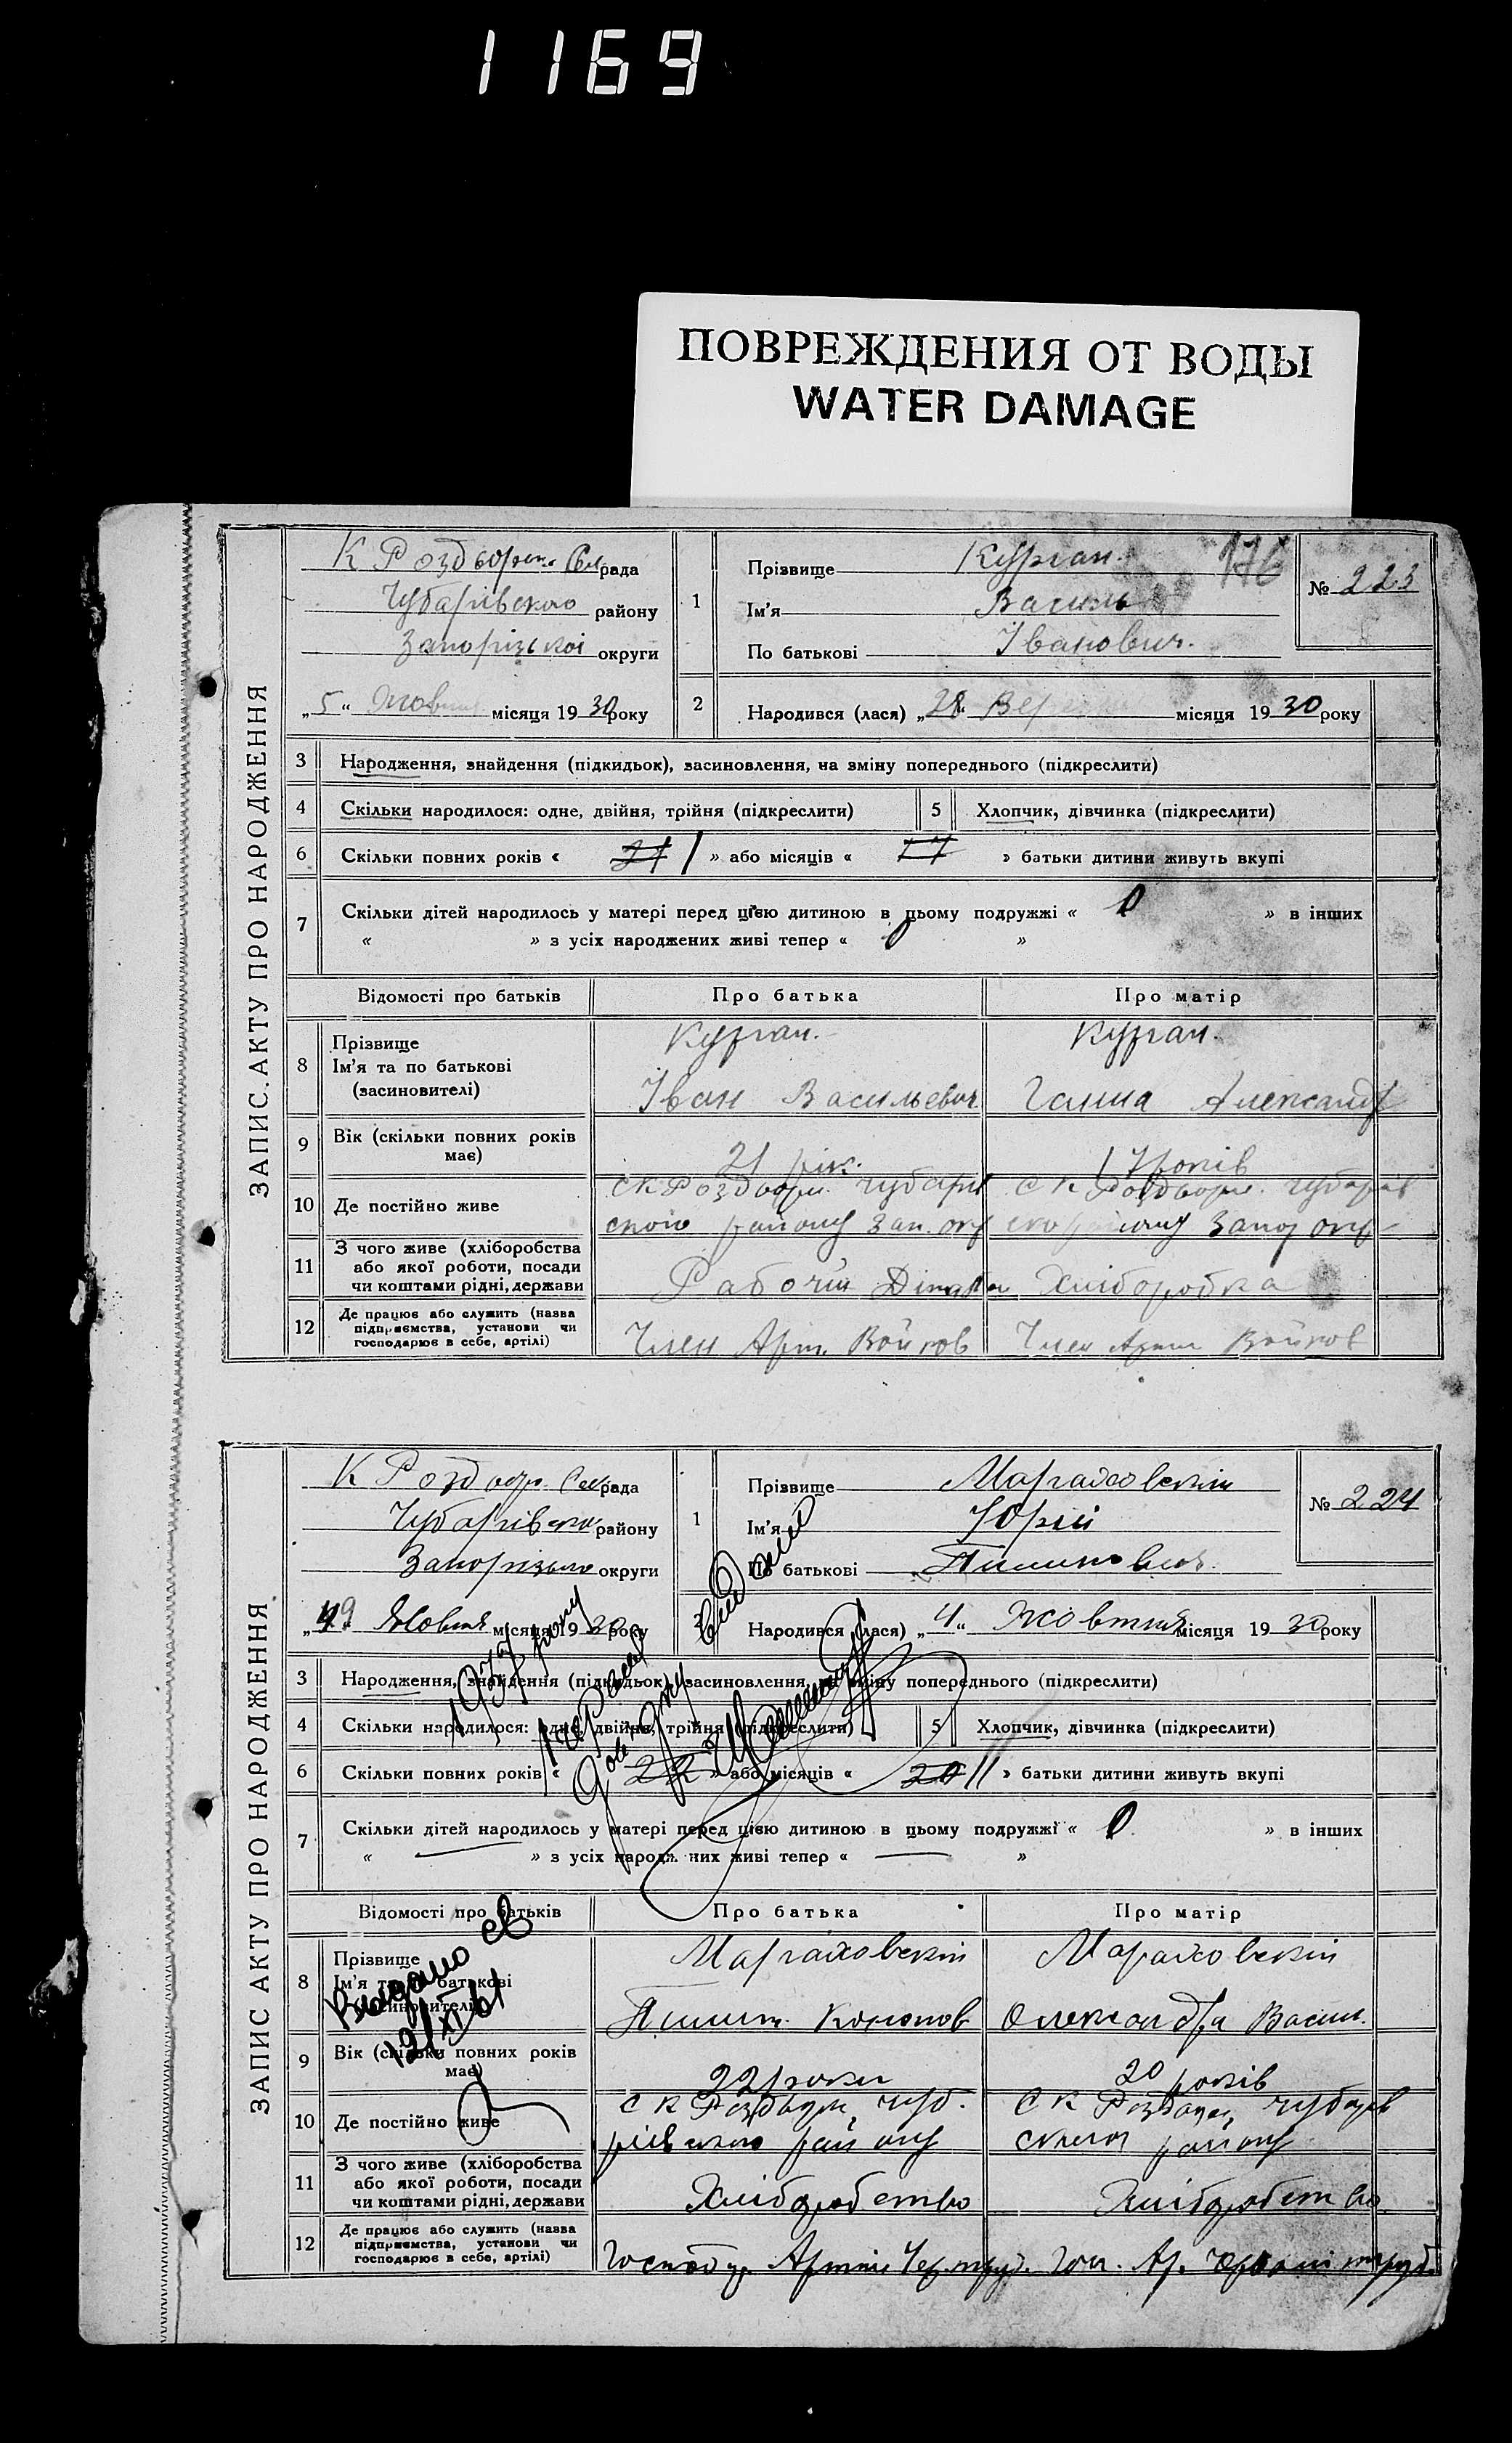 1169
ПОВРЕЖДЕНИЯ ОТ ВОДЫ
WATER DAMAGE
ЗАПИС АКТУ ПРО НАРОДЖЕННЯ
К Роздорск. Сел рада
Чубарівського району
Запорізької округи
„5“ Жовтня місяця 1930 року
1 Прізвище Курган.
Ім'я Василь
По батькові Іванович.
176
№ 223
2 Народився (лася) „28“ Вере місяця 1930 року
3 Народження, знайдення (підкидьок), засиновлення, на зміну попереднього (підкреслити)
4 Скільки народилося: одне, двійня, трійня (підкреслити)
5 Хлопчик, дівчинка (підкреслити)
6 Скільки повних років « 21 1 » або місяців « 17 » батьки дитини живуть вкупі
7 Скільки дітей народилось у матері перед цією дитиною в цьому подружжі « 0 » в інших
« » з усіх народжених живі тепер « 0 »
Відомості про батьків Про батька Про матір
8 Прізвище
Ім'я та по батькові
(засиновителі)
Курган.
Іван Васильевич
Курган.
Ганна Александр
9 Вік (скільки повних років має)
21 рік.
17 років
10 Де постійно живе
с К Роздори. Чубарів
ского району Зап. окр
с К Роздори. Чубарів
ско району Запор окр
11 З чого живе (хліборобства
або якої роботи, посади
чи коштами рідні, держави
Рабочій
Хліборобка
12 Де працює або служить (назва
підприємства, установи чи
господарює в себе, артілі)
Член Арт. Войков
Член Артил Войков
ЗАПИС АКТУ ПРО НАРОДЖЕННЯ
К Роздор. Сел рада
Чубарівськ району
Запорізько округи
9 Жовтня місяця 1930 року
1 Прізвище Мараховский
Ім'я Юрій
По батькові Пилипович.
№ 224
Народився (лася) „4“ Жовтня місяця 1930 року
3 Народження, знайдення (підкидьок), засиновлення, на зміну попереднього (підкреслити)
4 Скільки народилося: одне, двійня, трійня (підкреслити)
5 Хлопчик, дівчинка (підкреслити)
6 Скільки повних років « 22 » або місяців « 20 11 » батьки дитини живуть вкупі
7 Скільки дітей народилось у матері перед цією дитиною в цьому подружжі « 0 » в інших
« » з усіх народж них живі тепер « — »
1937 року
видані
Відомості про батьків Про батька Про матір
Выдано св
12/XI 61
8 Прізвище
Ім'я та по батькові
(засиновителі)
Мараховский
Пилип. Кононов
Мараховский
Олександра Васил.
9 Вік (скільки повних років має)
22 роки
20 років
10 Де постійно живе
с К Роздори, Чуб.
рівського району
с К Роздори, Чубарів
ского району
11 З чого живе (хліборобства
або якої роботи, посади
чи коштами рідні, держави
Хліборобство
Хліборобство.
12 Де працює або служить (назва
підприємства, установи чи
господарює в себе, артілі)
Господар. Артіли Чер. труд.
Гос. Ар. Червоний труд.